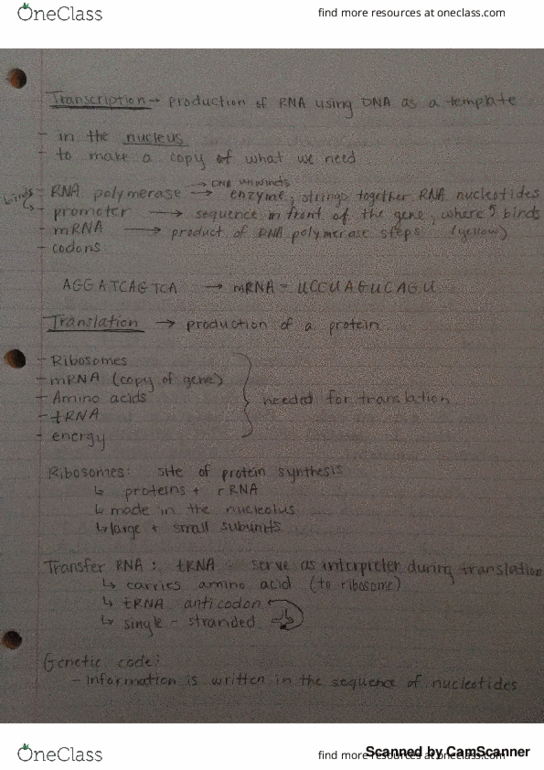 OneClass
find more resources at oneclass.com
Transcription → production of RNA using DNA as a template
- in the nucleus
- to make a copy of what we need
→ DNA unwinds
binds
- RNA polymerase → enzyme, strings together RNA nucleotides
- promoter → sequence in front of the gene, where binds
- mRNA → product of RNA polymerase steps (yellow)
- codons
AGGATCAGTCA → mRNA = UCCUAGUCAGU
Translation → production of a protein
- Ribosomes
- mRNA (copy of gene)
- Amino acids
needed for translation
- tRNA
- energy
Ribosomes: site of protein synthesis
↳ proteins + rRNA
↳ made in the nucleolus
↳ large + small subunits
Transfer RNA: tRNA serve as interpreter during translation
↳ carries amino acid (to ribosome)
↳ tRNA anticodon
↳ single-stranded
Genetic code:
- information is written in the sequence of nucleotides
OneClass
find more resources at oneclass.com
Scanned by CamScanner